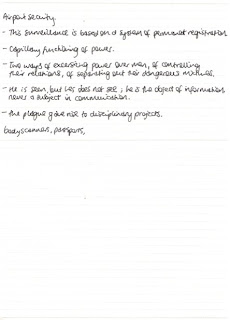 Airport security.
- This surveillance is based on a system of permanent registration
- Capillary functioning of power.
- Two ways of exercising power over men, of controlling
their relations, of separating out their dangerous mixtures.
- He is seen, but he does not see; he is the object of information,
never a subject in communication.
- The plague gave rise to disciplinary projects.
bodyscanners, passports,